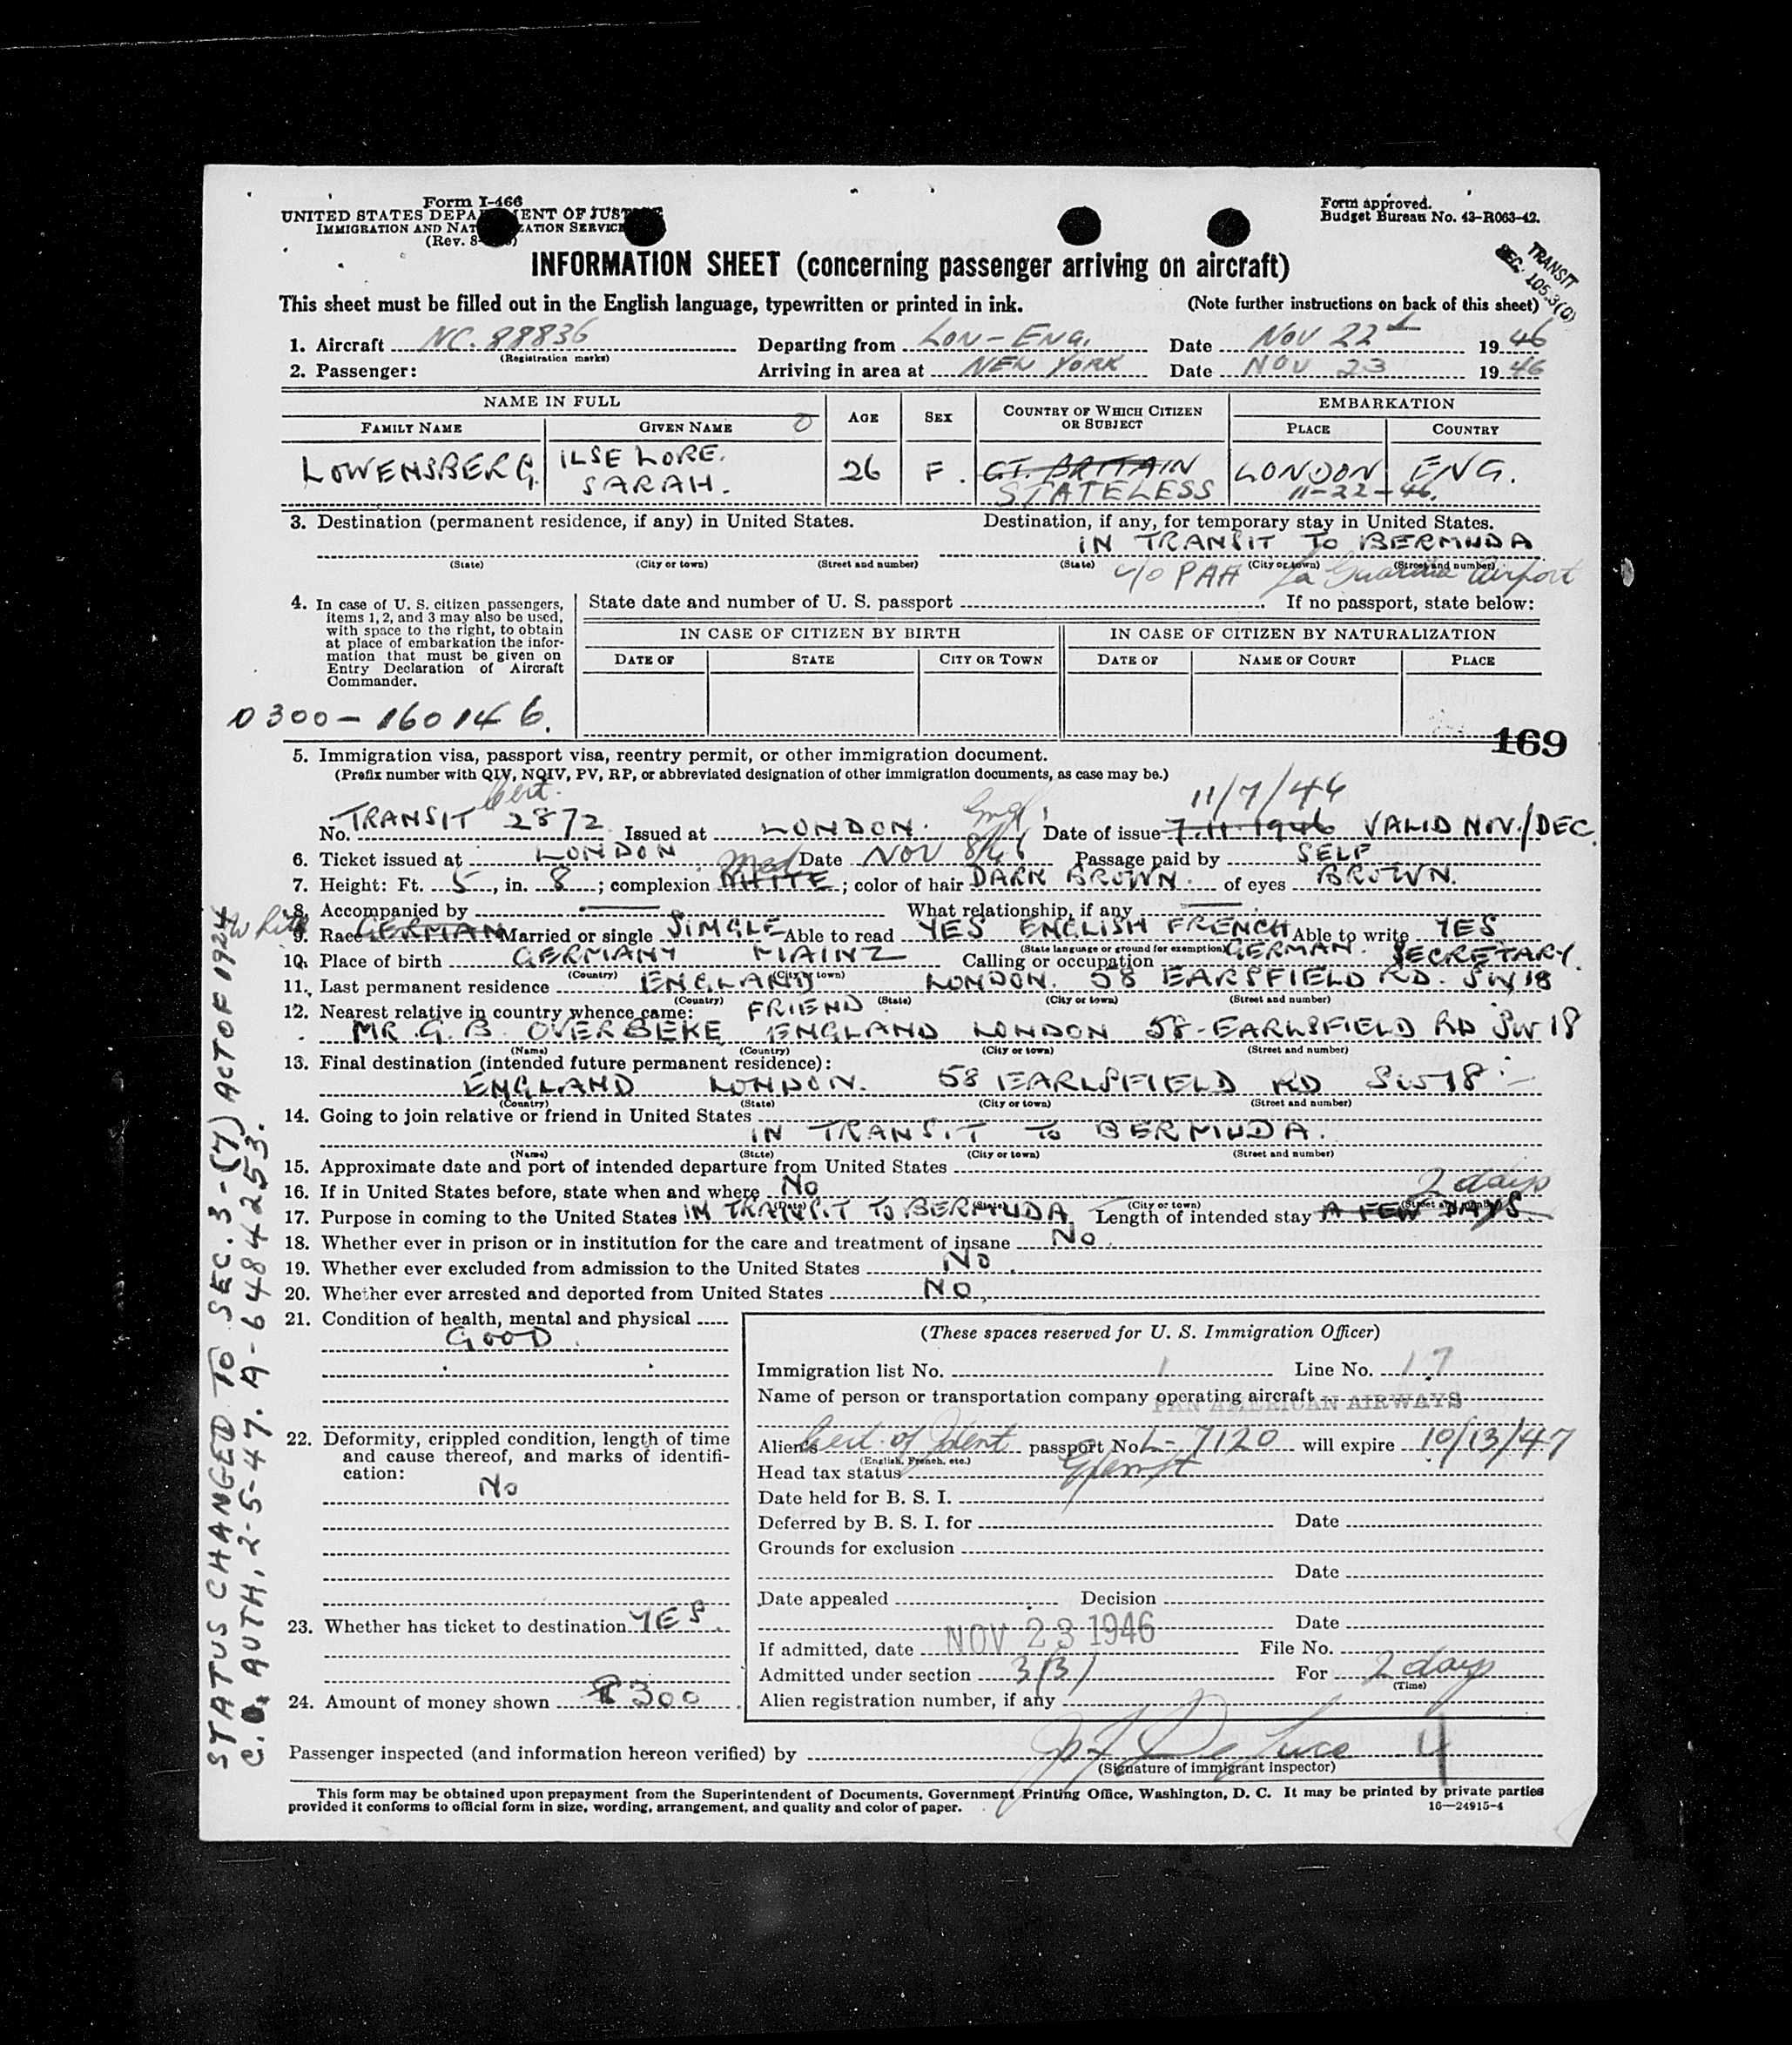 Form I-466
UNITED STATES DEPARTMENT OF JUSTICE
IMMIGRATION AND NATURALIZATION SERVICE
(Rev. 8-
Form approved.
Budget Bureau No. 43-R063-42.
TRANSIT
SEC. 105.3(0)
INFORMATION SHEET (concerning passenger arriving on aircraft)
This sheet must be filled out in the English language, typewritten or printed in ink. (Note further instructions on back of this sheet)
1. Aircraft NC. 88836 Departing from LON - ENG. Date NOV 22d 1946
(Registration marks)
2. Passenger: Arriving in area at NEW YORK Date NOV 23 1946
NAME IN FULL AGE SEX COUNTRY OF WHICH CITIZEN OR SUBJECT EMBARKATION
FAMILY NAME GIVEN NAME PLACE COUNTRY
LOWENSBERG. ILSE LORE. 26 F. GT. BRITAIN LONDON ENG.
SARAH. STATELESS 11-22-46.
3. Destination (permanent residence, if any) in United States. Destination, if any, for temporary stay in United States.
IN TRANSIT TO BERMUDA
(State) (City or town) (Street and number) (State) (City or town) (Street and number)
c/o PAA La Guardia Airport
4. In case of U. S. citizen passengers, items 1, 2, and 3 may also be used, with space to the right, to obtain at place of embarkation the information that must be given on Entry Declaration of Aircraft Commander.
State date and number of U. S. passport . If no passport, state below:
IN CASE OF CITIZEN BY BIRTH IN CASE OF CITIZEN BY NATURALIZATION
DATE OF STATE CITY OR TOWN DATE OF NAME OF COURT PLACE
0300-160146.
169
5. Immigration visa, passport visa, reentry permit, or other immigration document.
(Prefix number with QIV, NQIV, PV, RP, or abbreviated designation of other immigration documents, as case may be.)
Cert. 11/7/46
No. TRANSIT 2872 Issued at LONDON. Engl Date of issue 7.11.1946 VALID NOV./DEC.
6. Ticket issued at LONDON Date NOV 8/46 Passage paid by SELF
7. Height: Ft. 5, in. 8; complexion WHITE med; color of hair DARK BROWN. of eyes BROWN.
8. Accompanied by — What relationship, if any —
White
9. Race GERMAN Married or single SINGLE Able to read YES ENGLISH FRENCH Able to write YES
(State language or ground for exemption) GERMAN.
10. Place of birth GERMANY MAINZ Calling or occupation SECRETARY.
(Country) (City or town)
11. Last permanent residence ENGLAND LONDON. 58 EARSFIELD RD. SW18
(Country) (State) (City or town) (Street and number)
12. Nearest relative in country whence came: FRIEND
MR G. B. OVERBEKE ENGLAND LONDON 58-EARLSFIELD RD SW18
(Name) (Country) (City or town) (Street and number)
13. Final destination (intended future permanent residence):
ENGLAND LONDON. 58 EARLSFIELD RD SW18
(Country) (State) (City or town) (Street and number)
14. Going to join relative or friend in United States
IN TRANSIT TO BERMUDA.
(Name) (State) (City or town) (Street and number)
15. Approximate date and port of intended departure from United States
16. If in United States before, state when and where NO 2 days
(Date) (State) (City or town) (Street and number)
17. Purpose in coming to the United States IN TRANSIT TO BERMUDA Length of intended stay A FEW DAYS
18. Whether ever in prison or in institution for the care and treatment of insane NO.
19. Whether ever excluded from admission to the United States NO.
20. Whether ever arrested and deported from United States NO.
21. Condition of health, mental and physical
GOOD.
22. Deformity, crippled condition, length of time and cause thereof, and marks of identification:
NO
23. Whether has ticket to destination YES.
24. Amount of money shown $300
(These spaces reserved for U. S. Immigration Officer)
Immigration list No. 1 Line No. 17
Name of person or transportation company operating aircraft
PAN AMERICAN AIRWAYS
Alien's Cert. of Ident passport No. L-7120 will expire 10/13/47
(English, French, etc.)
Head tax status Exempt
Date held for B. S. I.
Deferred by B. S. I. for Date
Grounds for exclusion
Date
Date appealed Decision
Date
If admitted, date NOV 23 1946 File No.
Admitted under section 3(3) For 2 days
(Time)
Alien registration number, if any
Passenger inspected (and information hereon verified) by De Luca 4
(Signature of immigrant inspector)
This form may be obtained upon prepayment from the Superintendent of Documents, Government Printing Office, Washington, D. C. It may be printed by private parties
provided it conforms to official form in size, wording, arrangement, and quality and color of paper. 16—24915-4
STATUS CHANGED TO SEC. 3-(7) ACT OF 1924
C.O. AUTH, 2-5-47. A-6484253.